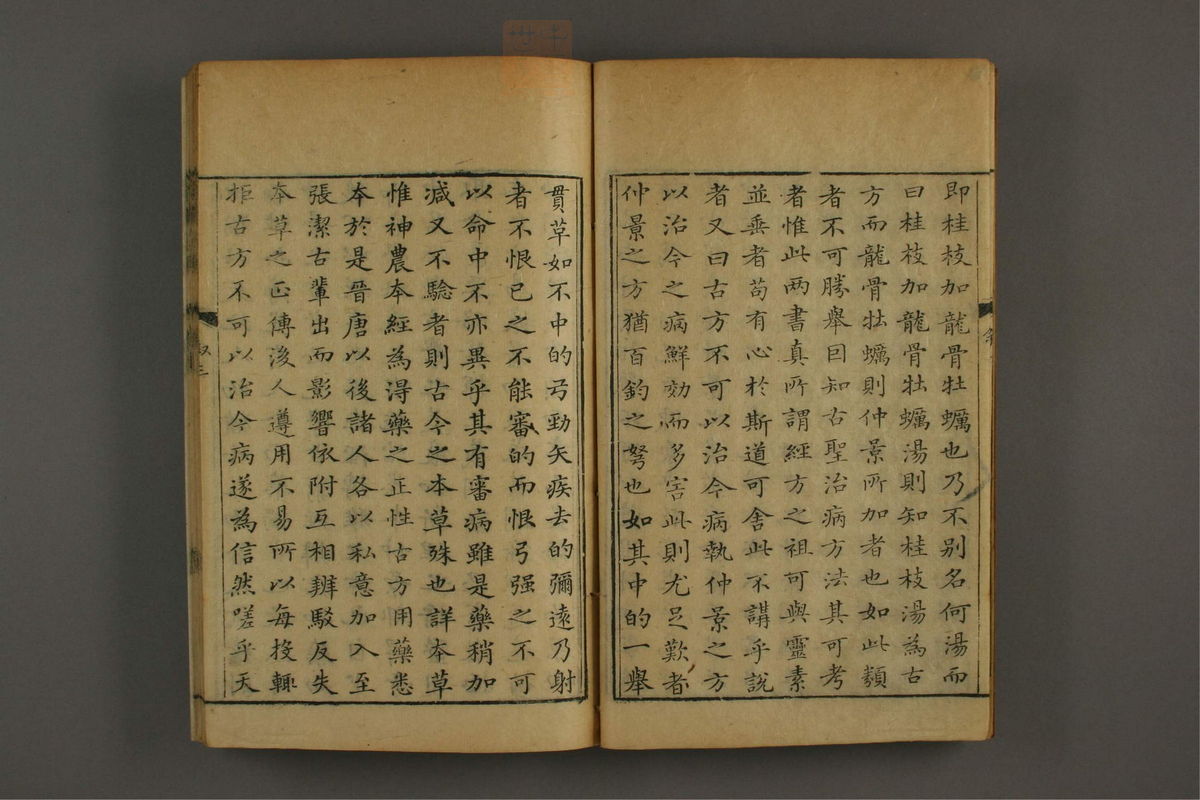 即桂枝加龍骨牡蠣也乃不别名何湯而
曰桂枝加龍骨牡蠣湯則知桂枝湯為古
方而龍骨牡蠣則仲景所加者也如此類
者不可勝舉因知古聖治病方法其可考
者惟此两書真所謂經方之祖可與靈素
並垂者苟有心於斯道可舍此不講乎說
者又曰古方不可以治今病執仲景之方
以治今之病鮮効而多害此則尤足歎者
仲景之方猶百鈞之弩也如其中的一舉
貫革如不中的弓勁矢疾去的彌遠乃射
者不恨已之不能審的而恨弓强之不可
以命中不亦異乎其有審病雖是藥稍加
減又不驗者則古今之本草殊也詳本草
惟神農本經為得藥之正性古方用藥悉
本於是晉唐以後諸人各以私意加入至
張潔古輩出而影響依附互相辨駁反失
本草之正傳後人遵用不易所以每投輒
拒古方不可以治今病遂為信然嗟乎天
叙三